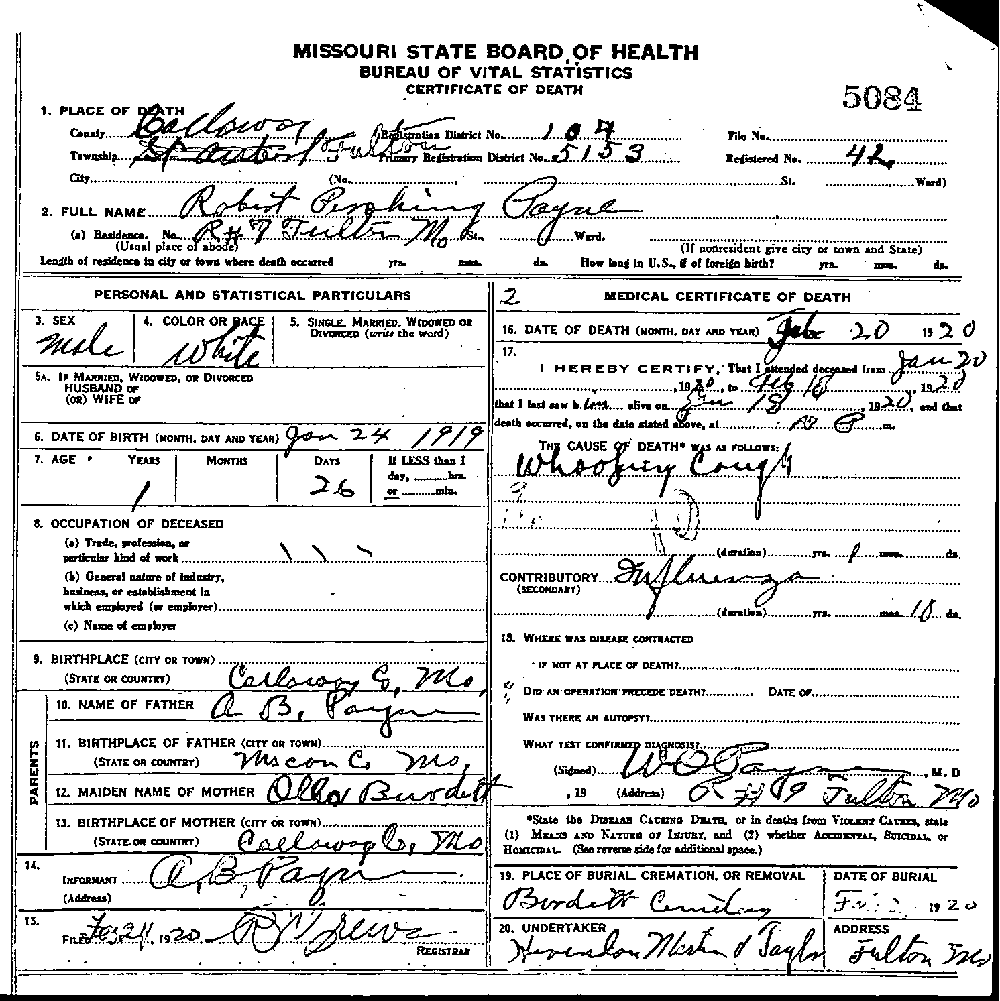 MISSOURI STATE BOARD OF HEALTH
BUREAU OF VITAL STATISTICS
CERTIFICATE OF DEATH
5084
1. PLACE OF DEATH
County Calloway Registration District No. 104 File No.
Township St Aubert Fulton Primary Registration District No. 5153 Registered No. 42
City (No. St. Ward)
2. FULL NAME Robert Pershing Payne
(a) Residence. No. R#7 Fulton Mo St. Ward.
(Usual place of abode) (If nonresident give city or town and State)
Length of residence in city or town where death occurred yrs. mos. ds. How long in U.S., if of foreign birth? yrs. mos. ds.
PERSONAL AND STATISTICAL PARTICULARS
3. SEX 4. COLOR OR RACE 5. SINGLE, MARRIED, WIDOWED OR
DIVORCED (write the word)
Male White
5A. IF MARRIED, WIDOWED, OR DIVORCED
HUSBAND OF
(OR) WIFE OF
6. DATE OF BIRTH (MONTH, DAY AND YEAR) Jan 24 1919
7. AGE YEARS MONTHS DAYS If LESS than 1
day, hrs.
or min.
1 26
8. OCCUPATION OF DECEASED
(a) Trade, profession, or
particular kind of work
(b) General nature of industry,
business, or establishment in
which employed (or employer)
(c) Name of employer
9. BIRTHPLACE (CITY OR TOWN)
(STATE OR COUNTRY) Calloway Co, Mo,
PARENTS
10. NAME OF FATHER A B, Payne
11. BIRTHPLACE OF FATHER (CITY OR TOWN)
(STATE OR COUNTRY) Macon Co Mo,
12. MAIDEN NAME OF MOTHER Olla Burdett
13. BIRTHPLACE OF MOTHER (CITY OR TOWN)
(STATE OR COUNTRY) Calloway Co, Mo
14.
INFORMANT A, B, Payne
(Address)
15.
FILED 1920 REGISTRAR
2 MEDICAL CERTIFICATE OF DEATH
16. DATE OF DEATH (MONTH, DAY AND YEAR) Feb 20 1920
17.
I HEREBY CERTIFY, That I attended deceased from Jan 20
, 1920, to Feb 18, 1920
that I last saw h alive on 18 1920, and that
death occurred, on the date stated above, at m.
THE CAUSE OF DEATH* WAS AS FOLLOWS:
Whooping Cough
(duration) yrs. 1 mos. ds.
CONTRIBUTORY Influenza
(SECONDARY)
(duration) yrs. mos. 10 ds.
18. WHERE WAS DISEASE CONTRACTED
IF NOT AT PLACE OF DEATH?
DID AN OPERATION PRECEDE DEATH? DATE OF
WAS THERE AN AUTOPSY?
WHAT TEST CONFIRMED DIAGNOSIS?
(Signed) W O Payne, M. D
, 19 (Address) R # Fulton Mo
*State the DISEASE CAUSING DEATH, or in deaths from VIOLENT CAUSES, state
(1) MEANS AND NATURE OF INJURY, and (2) whether ACCIDENTAL, SUICIDAL, or
HOMICIDAL. (See reverse side for additional space.)
19. PLACE OF BURIAL, CREMATION, OR REMOVAL DATE OF BURIAL
Burdett Cemetery 1920
20. UNDERTAKER ADDRESS
Herndon Martin & Taylor Fulton Mo